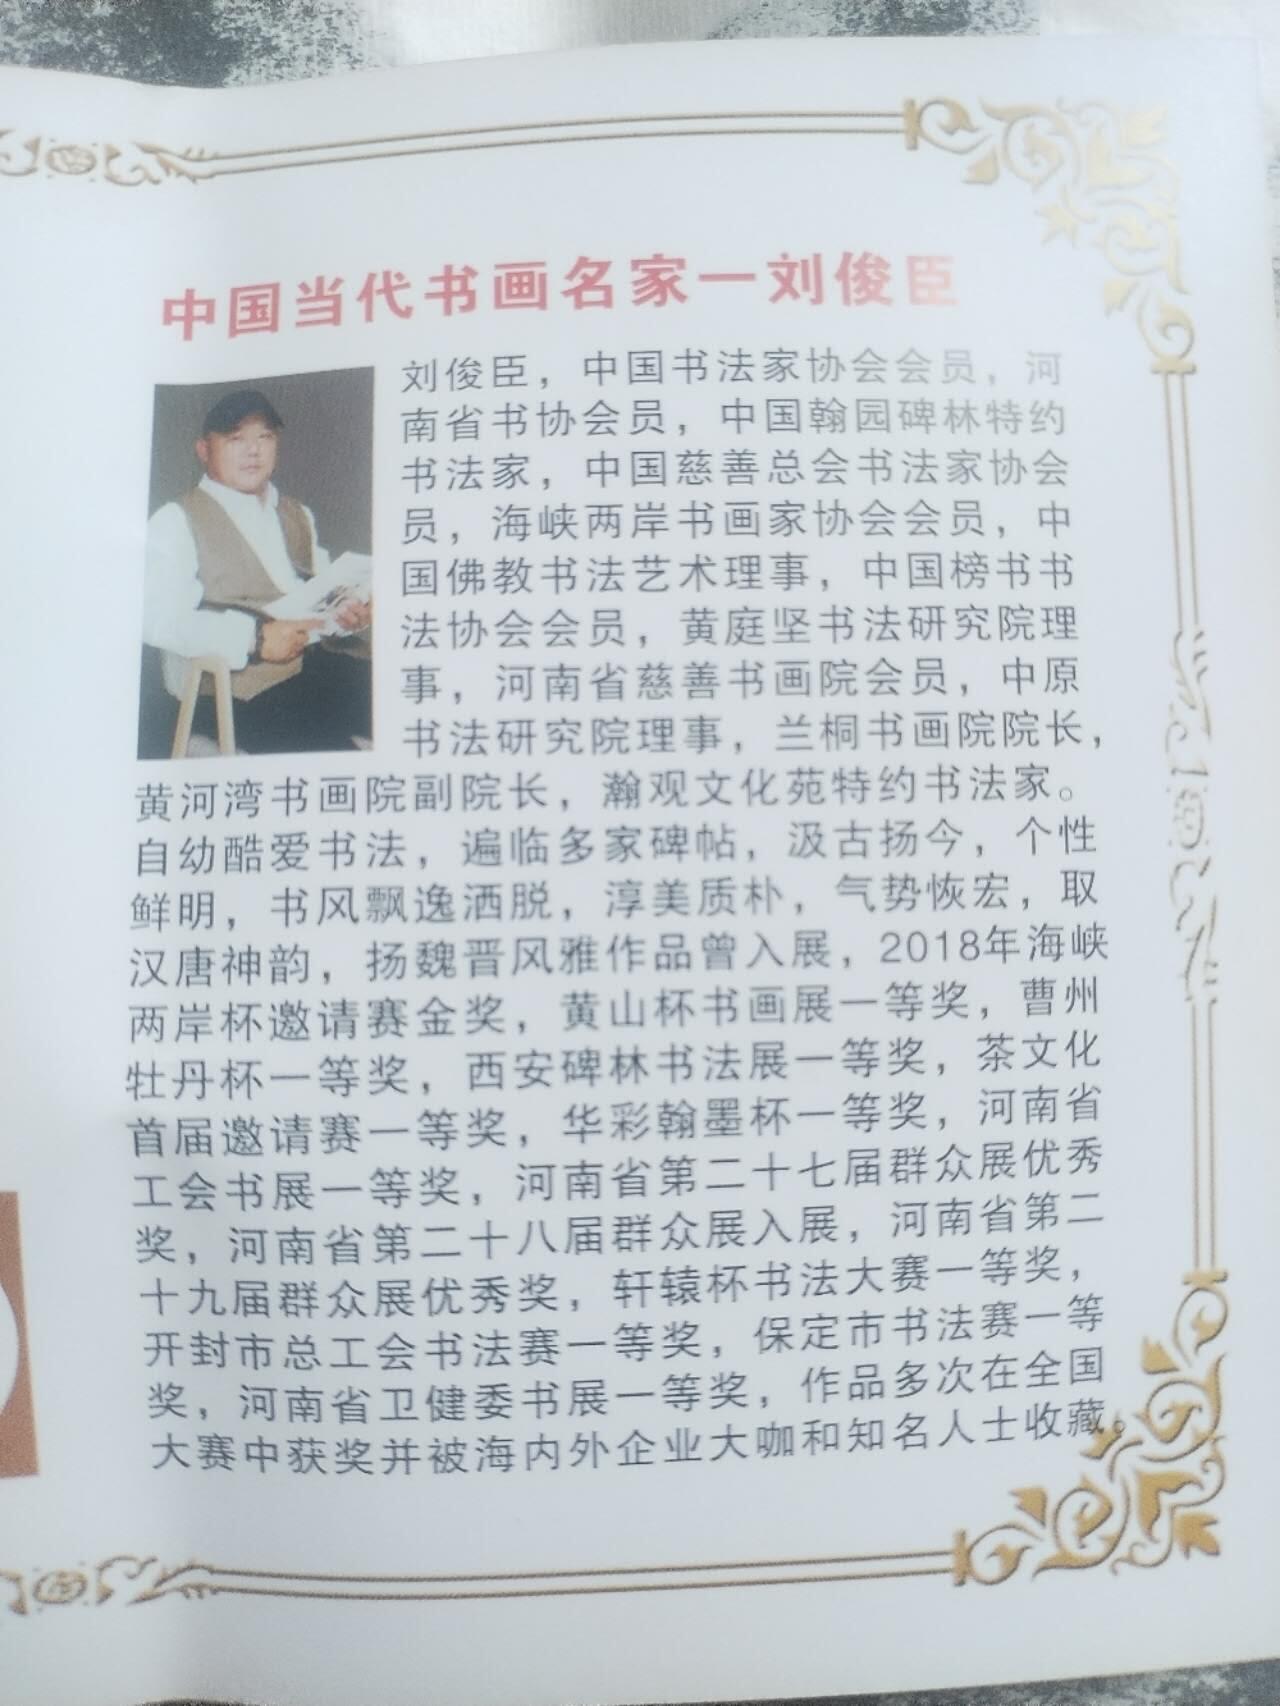 中国当代书画名家一刘俊臣
刘俊臣，中国书法家协会会员，河
南省书协会员，中国翰园碑林特约
书法家，中国慈善总会书法家协会
员，海峡两岸书画家协会会员，中
国佛教书法艺术理事，中国榜书书
法协会会员，黄庭坚书法研究院理
事，河南省慈善书画院会员，中原
书法研究院理事，兰桐书画院院长，
黄河湾书画院副院长，瀚观文化苑特约书法家。
自幼酷爱书法，遍临多家碑帖，汲古扬今，个性
鲜明，书风飘逸洒脱，淳美质朴，气势恢宏，取
汉唐神韵，扬魏晋风雅作品曾入展，2018年海峡
两岸杯邀请赛金奖，黄山杯书画展一等奖，曹州
牡丹杯一等奖，西安碑林书法展一等奖，茶文化
首届邀请赛一等奖，华彩翰墨杯一等奖，河南省
工会书展一等奖，河南省第二十七届群众展优秀
奖，河南省第二十八届群众展入展，河南省第二
十九届群众展优秀奖，轩辕杯书法大赛一等奖，
开封市总工会书法赛一等奖，保定市书法赛一等
奖，河南省卫健委书展一等奖，作品多次在全国
大赛中获奖并被海内外企业大咖和知名人士收藏。